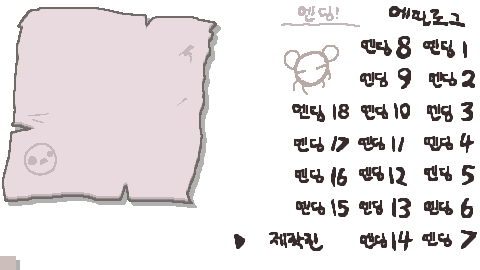 엔딩! 에필로그
엔딩 8 엔딩 1
엔딩 9 엔딩 2
엔딩 18 엔딩 10 엔딩 3
엔딩 17 엔딩 11 엔딩 4
엔딩 16 엔딩 12 엔딩 5
엔딩 15 엔딩 13 엔딩 6
제작진 엔딩 14 엔딩 7